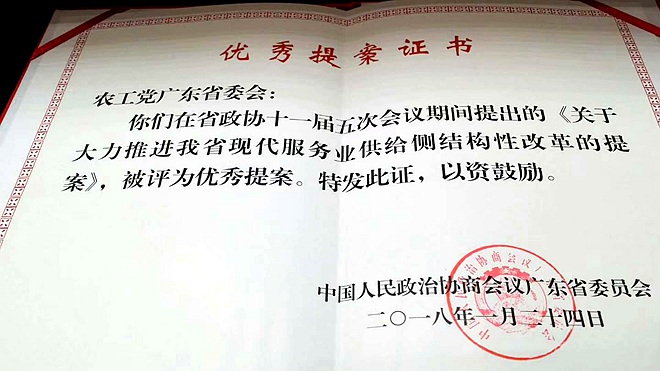 优秀提案证书
农工党广东省委会：
你们在省政协十一届五次会议期间提出的《关于
大力推进我省现代服务业供给侧结构性改革的提
案》，被评为优秀提案。特发此证，以资鼓励。
中国人民政治协商会议广东省委员会
二〇一八年一月二十四日